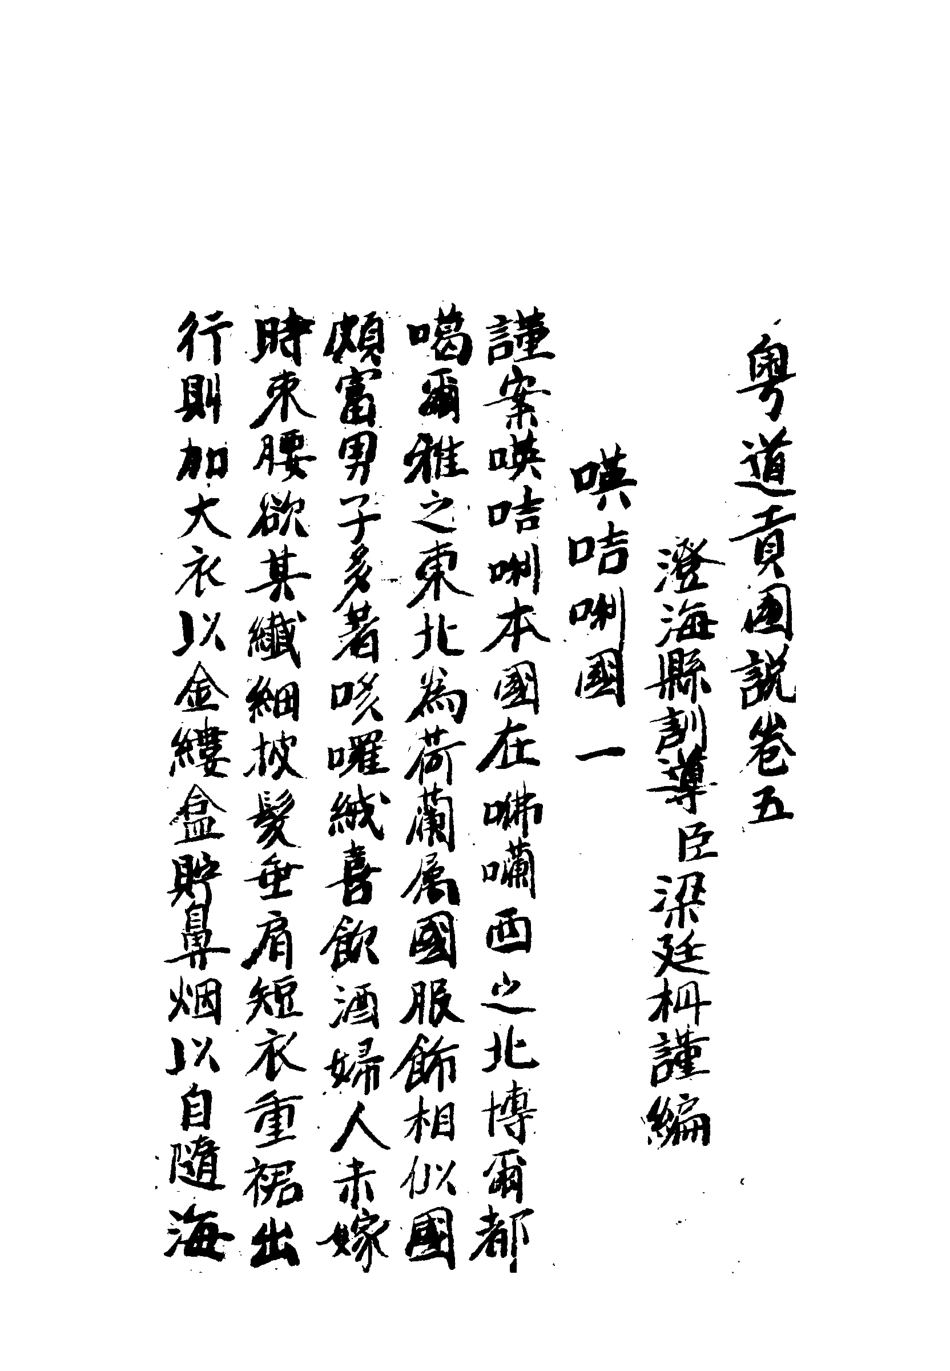 粵道貢國說卷五
澄海縣訓導臣梁廷枏謹編
㗲咭唎國一
謹案㗲咭唎本國在咈囒西之北博爾都
噶爾雅之東北為荷蘭屬國服飾相似國
頗富男子多著哆囉絨喜飲酒婦人未嫁
時束腰欲其纖細披髮垂肩短衣重裙出
行則加大衣以金縷盒貯鼻烟以自隨海